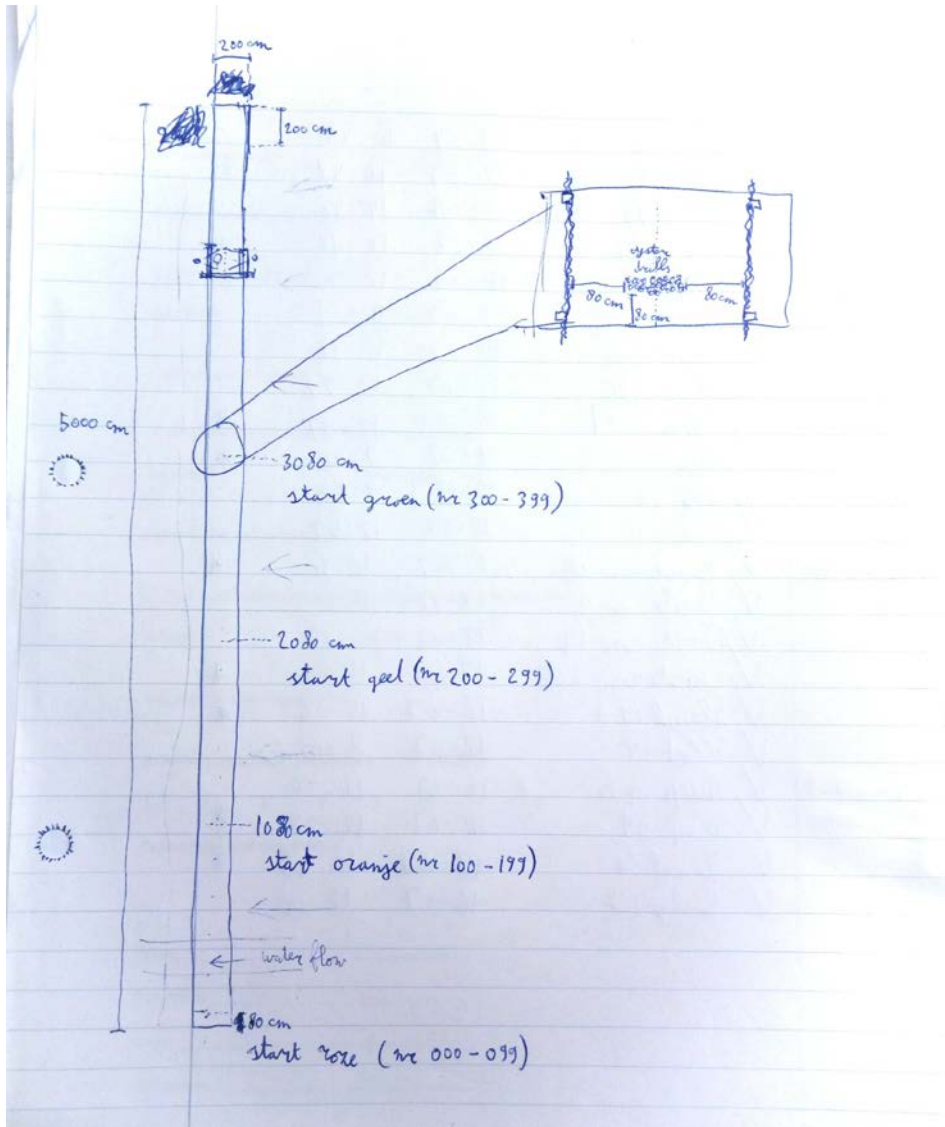 200 cm
200 cm
oyster
80 cm
80 cm
80 cm
5000 cm
3080 cm
start groen (nr 300 - 399)
2080 cm
start geel (nr 200 - 299)
1080 cm
start oranje (nr 100 - 199)
water flow
80 cm
start roze (nr 000 - 099)